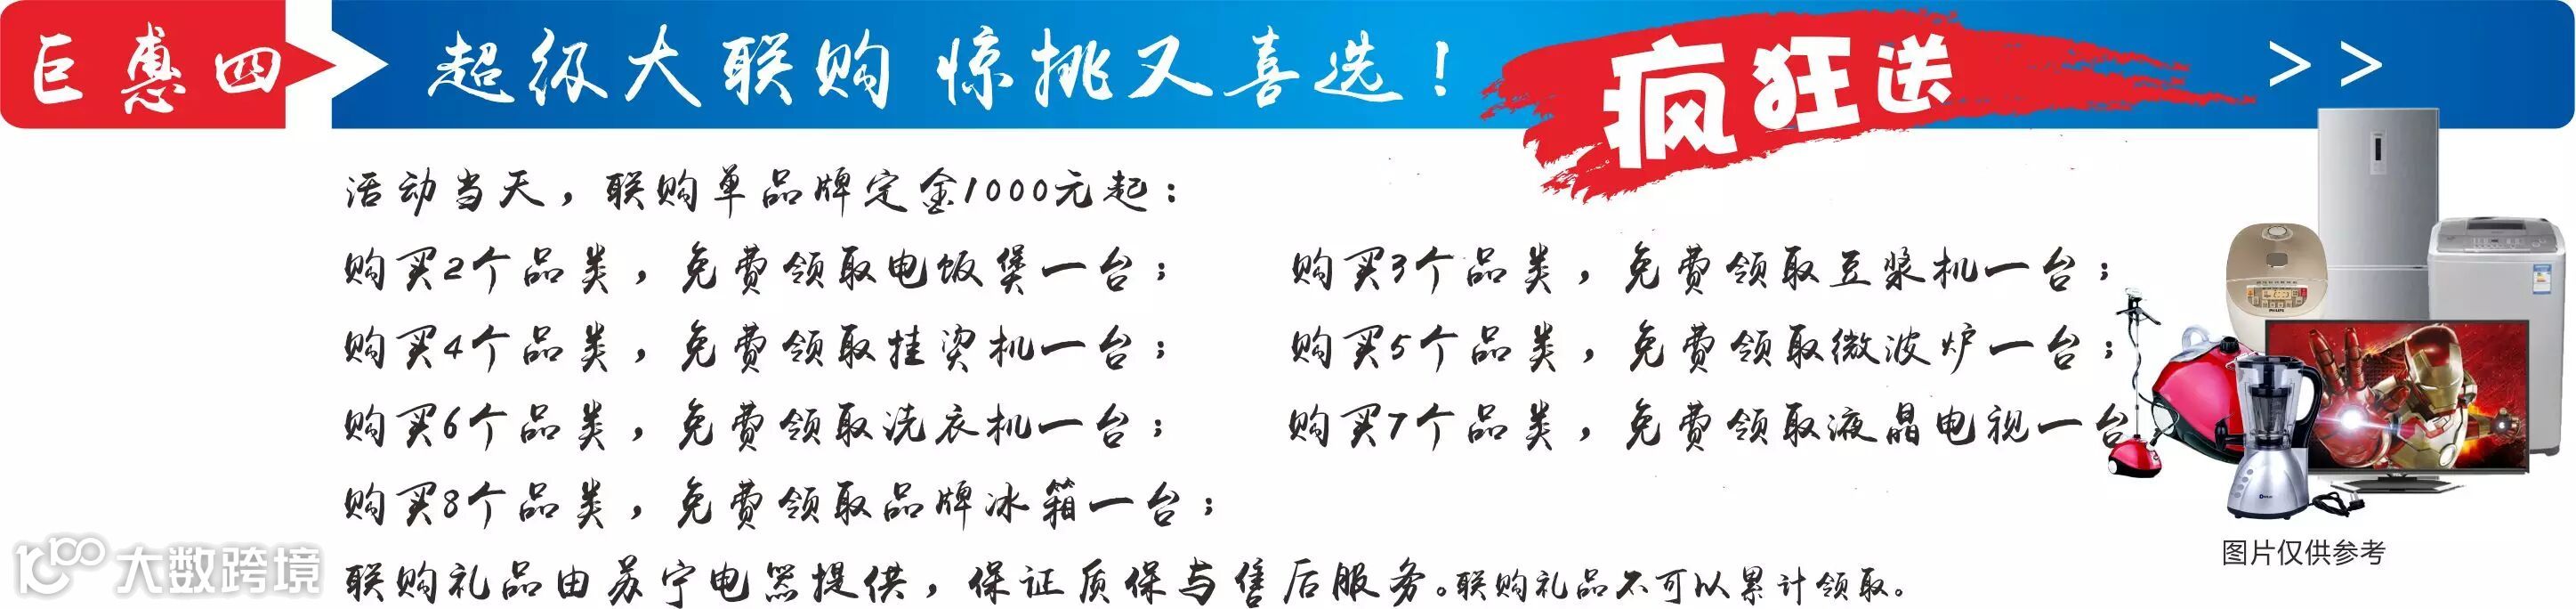 巨惠四
超级大联购 惊挑又喜选！
疯狂送
>>
活动当天，联购单品牌定金1000元起：
购买2个品类，免费领取电饭煲一台；
购买3个品类，免费领取豆浆机一台；
购买4个品类，免费领取挂烫机一台；
购买5个品类，免费领取微波炉一台；
购买6个品类，免费领取洗衣机一台；
购买7个品类，免费领取液晶电视一台
购买8个品类，免费领取品牌冰箱一台；
联购礼品由苏宁电器提供，保证质保与售后服务。联购礼品不可以累计领取。
图片仅供参考
大数跨境